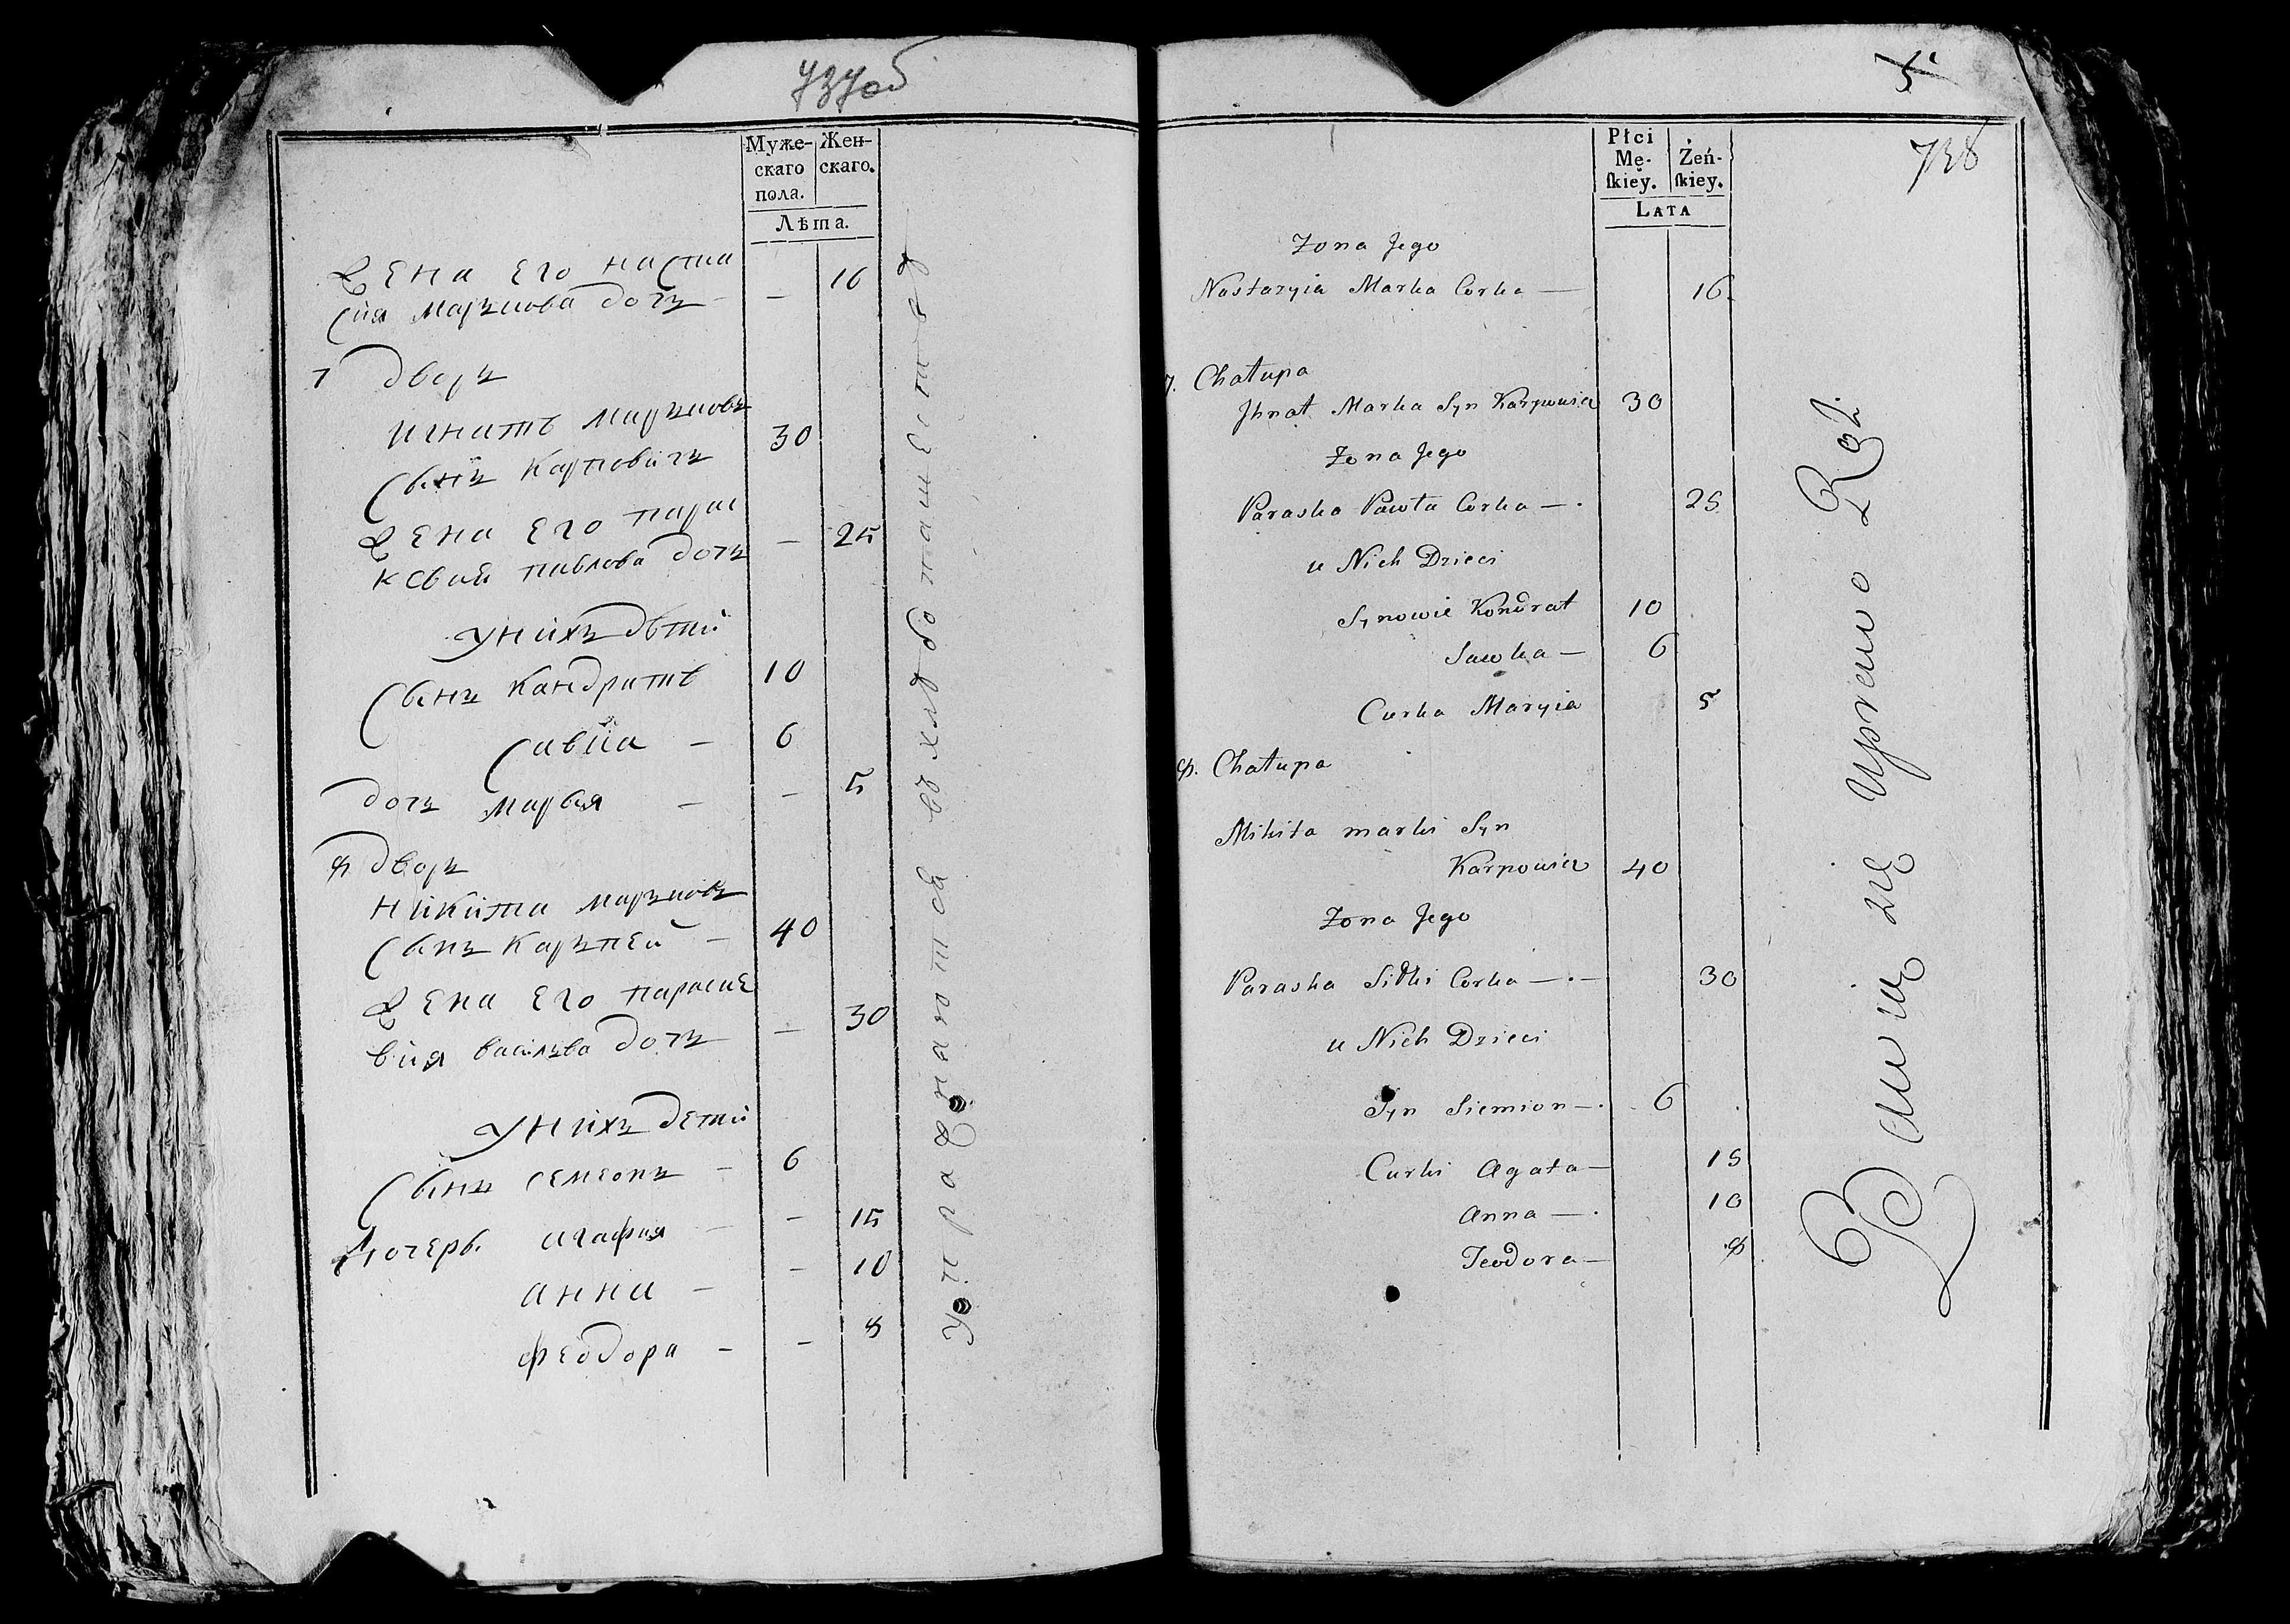 737об
Муже-
скаго
пола.
Жен-
скаго.
Лѣта.
Жена его наста
сия маръкова дочъ - - 16
7 дворъ
игнатъ маръковъ
сынъ карповичъ 30
жена его парас
ксвия павлова дочъ - 25
униxъ дѣти
сынъ кандратъ 10
савка - 6
дочъ марья - - 5
8 дворъ
никита маръковъ
сынъ каръпей - 40
жена его параске
вия васильва дочъ - 30
унихъ дети
сынъ семеонъ - 6
Дочерь агафия - - 15
анна - - 10
феодора - - 8
упражняются въ хлѣбопашестве
5
738
Płci
Mę-
skiey.
Żeń-
skiey.
LATA
Zona Jego
Nastazyia Marka Corka — 16.
7. Chałupa
Jhnat Marka Syn Karpowicz 30
Zona Jego
Paraska Pawła Corka — 25
u Nich Dzieci
Synowie Kondrat 10
Sawka — 6
Curka Maryia 5
8. Chałupa
Mikita marki Syn
Karpowicz 40
Zona Jego
Paraska Sidki Corka — 30
u Nich Dzieci
Syn Siemion — 6
Curki Agata — 15
Anna — 10
Teodora — 8
Bawią się Uprawo Roli